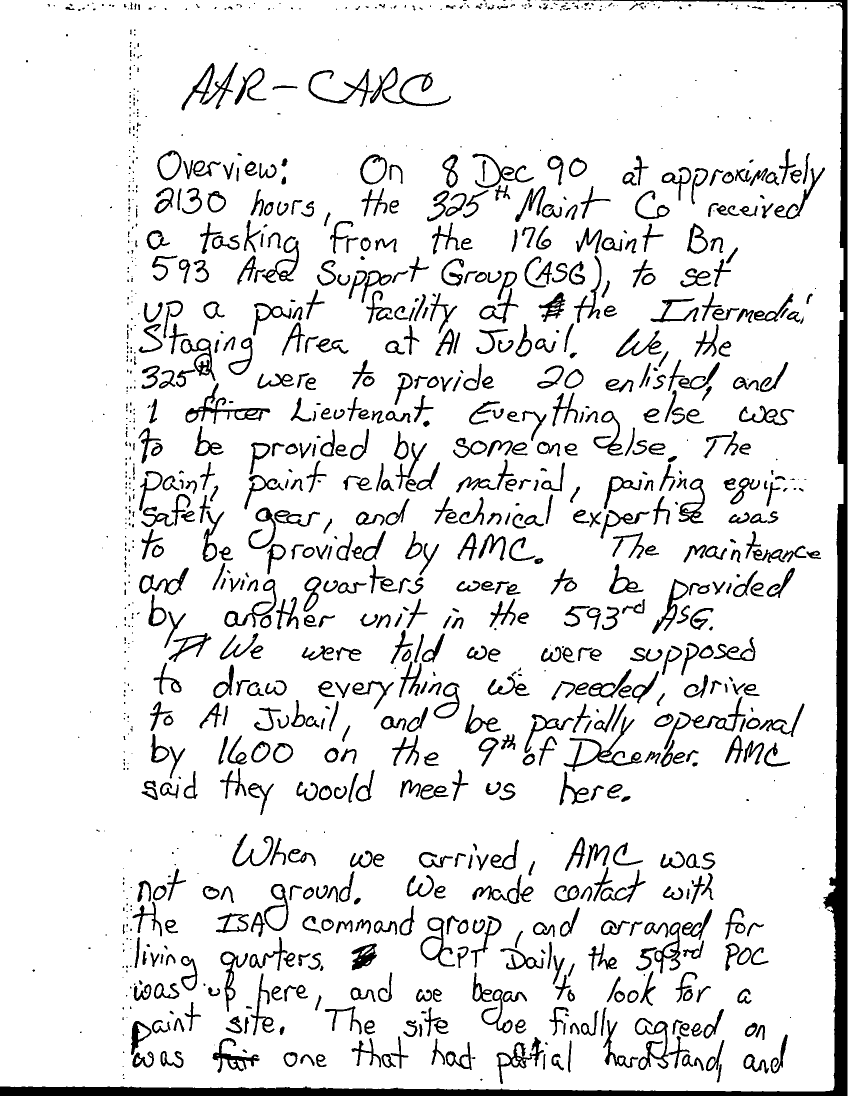 AAR - CARC
Overview: On 8 Dec 90 at approximately
2130 hours, the 325th Maint Co received
a tasking from the 176 Maint Bn,
593 Area Support Group (ASG), to set
up a paint facility at the Intermedia
Staging Area at Al Jubail. We, the
325th, were to provide 20 enlisted, and
1 officer Lieutenant. Everything else was
to be provided by someone else. The
paint, paint related material, painting equip...
safety gear, and technical expertise was
to be provided by AMC. The maintenance
and living quarters were to be provided
by another unit in the 593rd ASG.
We were told we were supposed
to draw everything we needed, drive
to Al Jubail, and be partially operational
by 1600 on the 9th of December. AMC
said they would meet us here.
When we arrived, AMC was
not on ground. We made contact with
the ISA command group, and arranged for
living quarters. CPT Daily, the 593rd POC
was up here, and we began to look for a
paint site. The site we finally agreed on
was fair one that had partial hardstand, and